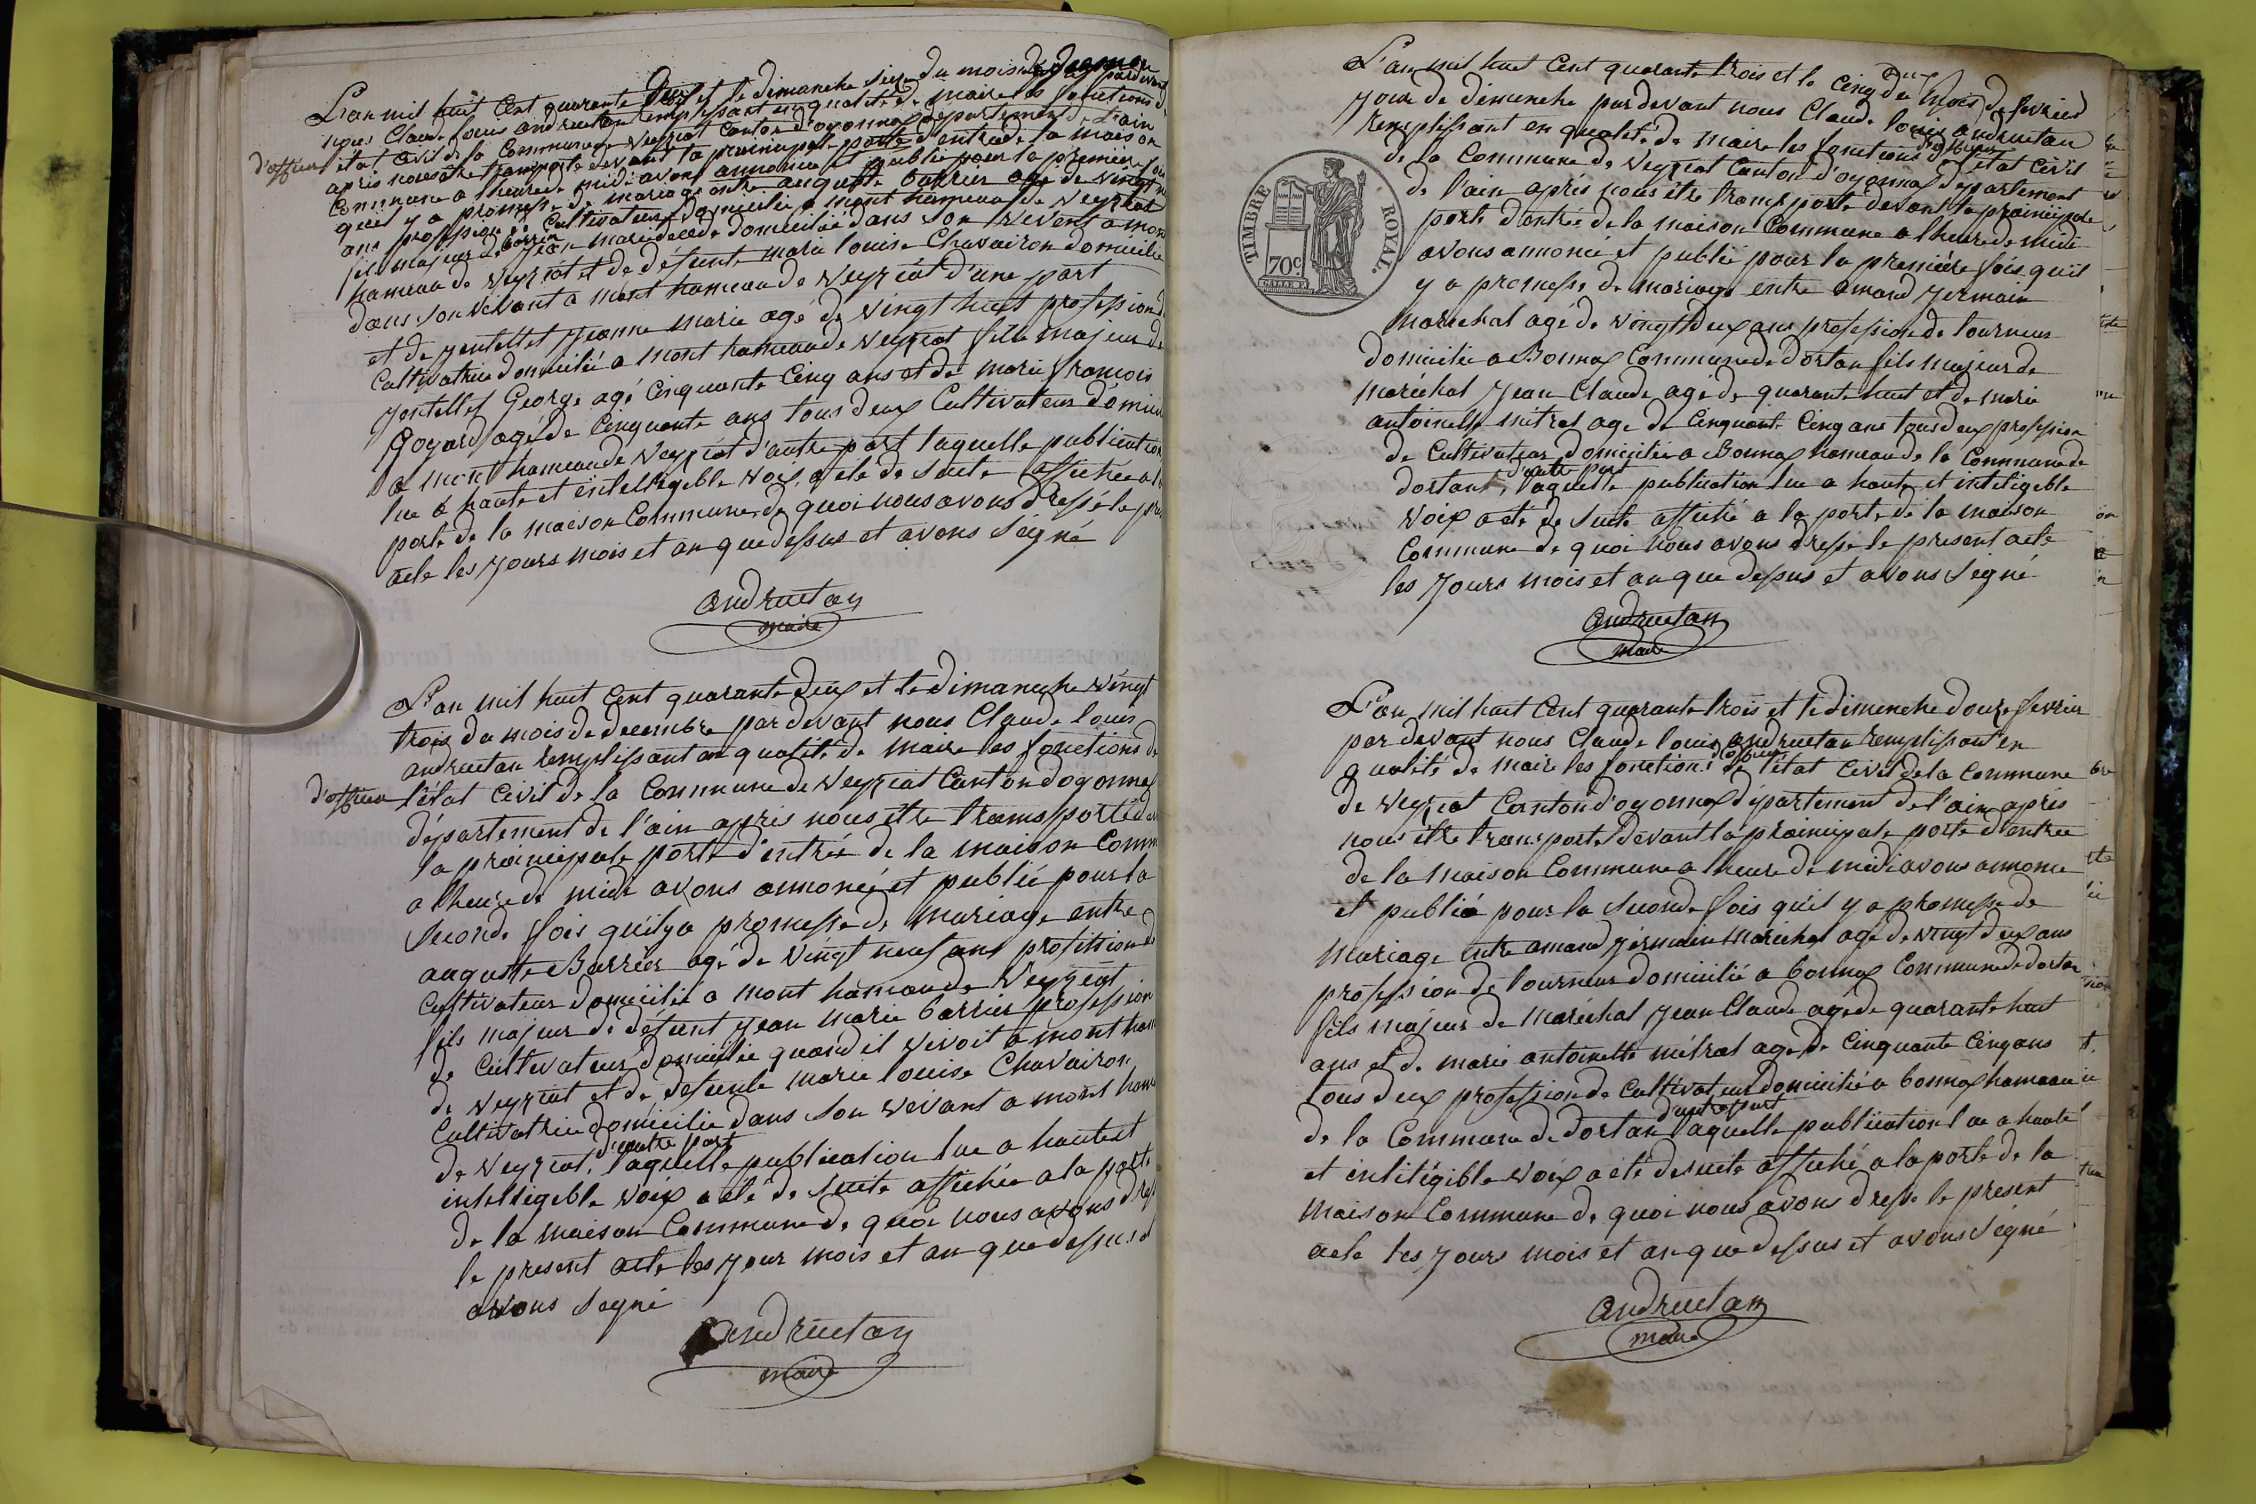 L'an mil huit Cent quarante Deux et le dimanche du mois de
nous Claude louis andruétan remplissant en qualité de maire les fonctions
d'officier
état Civil de la Commune de Veyziat Canton d'oyonnax département de l'ain
après nous être transporté devant la prainsipale porte d'entrée de la maison
Commune a l'heure de midi avons annoncé et publié pour la première fois
qu'il y a promesse de mariage entre auguste barrier agé de vingt
ans profession de Cultivateur domicilié a mont hameau de Veyziat
fils majeur de Jean marie domicilié dans son vivent a mont
barrier
hameau de Veyziat et de defunte marie louise Chavairon domicilie
dans son vivant a mont hameau de Veyziat d'une part
et de Jeantellet Jeanne marie agé de vingt huit profession
Cultivatrice domicilié a mont hameau de Veyziat fille majeur de
George agé Cinquante Cinq ans et de marie francois
Goyard agé de Cinquante ans tous deux Cultivateur
a mont hameau de Veyziat d'autre part laquelle publication
lue a haute et intelligeble voix, a été de suite affichée a
porte de la maison Commune de quoi nous avons dressé le
acte les jours mois et an que dessus et avons Ségné
andruétan
maire
L'an mil huit Cent quarante deux et le dimanche vingt
trois du mois de decembre par devant nous Claude louis
andruetan remplissant en qualité de maire les fonctions de
d'officier
l'état Civil de la Commune de Veyziat Canton doyonnax
département de l'ain après nous être transporté
la prainsipale porte d'entrée de la maison
a l'heure de midi avons annoncé et publié pour la
seconde fois qu'il y a promesse de mariage entre
auguste Barrier agé de vingt neuf ans profession de
Cultivateur domicilié a mont hameau de Veyziat
fils majeur de défunt Jean marie barrier profession
de Cultivateur domicilié quand il vivoit a mont
de Veyziat et de defunte marie louise Chavairon
Cultivatrice domicilie dans son vivant a mont
d'autre part
de Veyziat, laquelle publication lue a haute et
intelligeble voix a été de suite affichée a la porte
de la maison Commune de quoi nous avons
le present acte les jour mois et an que dessus
avons segné
andruétan
maire
L'an mil huit Cent quarante trois et le Cinq du mois de fevrier
jour de dimanche par devant nous Claude louis andruetan
remplissant en qualité de maire les fonctions de l'état Civil
d'officier
de la Commune de Veyziat Canton d'oyonnax département
de l'ain après nous être transporté devant la prainsipale
porte d'entrée de la maison Commune a l'heure de midi
avons annoncé et publié pour la première fois qu'il
y a promesse de mariage entre amand germain
maréchal agé de vingt deux ans profession de tourneur
domicilié a Bonnaz Commune de dortan fils majeur de
maréchal Jean Claude agé de quarante huit et de marie
antoinette mêtral agé de Cinquante Cinq ans tous deux profession
de Cultivateur domicilié a Bonnaz hameau de la Commune de
d'autre part
dortant, laquelle publication lue a haute et inteligeble
voix a été de suite affiché a la porte de la maison
Commune de quoi nous avons dressé le present acte
les jours mois et an que dessus et avons Segné
TIMBRE ROYAL.
70c
andruetan
maire
L'an mil huit Cent quarante trois et le dimenche douze fevrier
par devant nous Claude louis andruetan remplissant en
qualité de maire les fonctions de l'état Civil de la Commune
d'officier
de Veyziat Canton d'oyonnax département de l'ain après
nous être transporté devant la prainsipale porte d'entrée
de la maison Commune a l'heure de midi avons annoncé
et publié pour la seconde fois qu'il y a promesse de
mariage entre amand Jérmain maréchal agé de vingt deux ans
profession de tourneur domicilié a bonnaz Commune de dortan
fils majeur de maréchal Jean Claude agé de quarante huit
ans et de marie antoinette métral agé de Cinquante Cinq ans
tous deux profession de Cultivateur domicilié a bonnaz hameau
d'autre part
de la Commune de dortan laquelle publication lue a haute
et intiligible voix a été de suite affiché a la porte de la
maison Commune de quoi nous avons dressé le present
acte les jours mois et an que dessus et avons Ségné
andruetan
maire